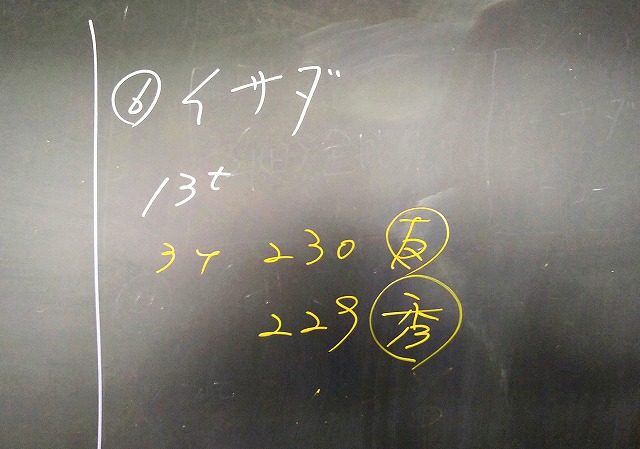 ⑥ イサダ
13t
34 230 友
229 秀